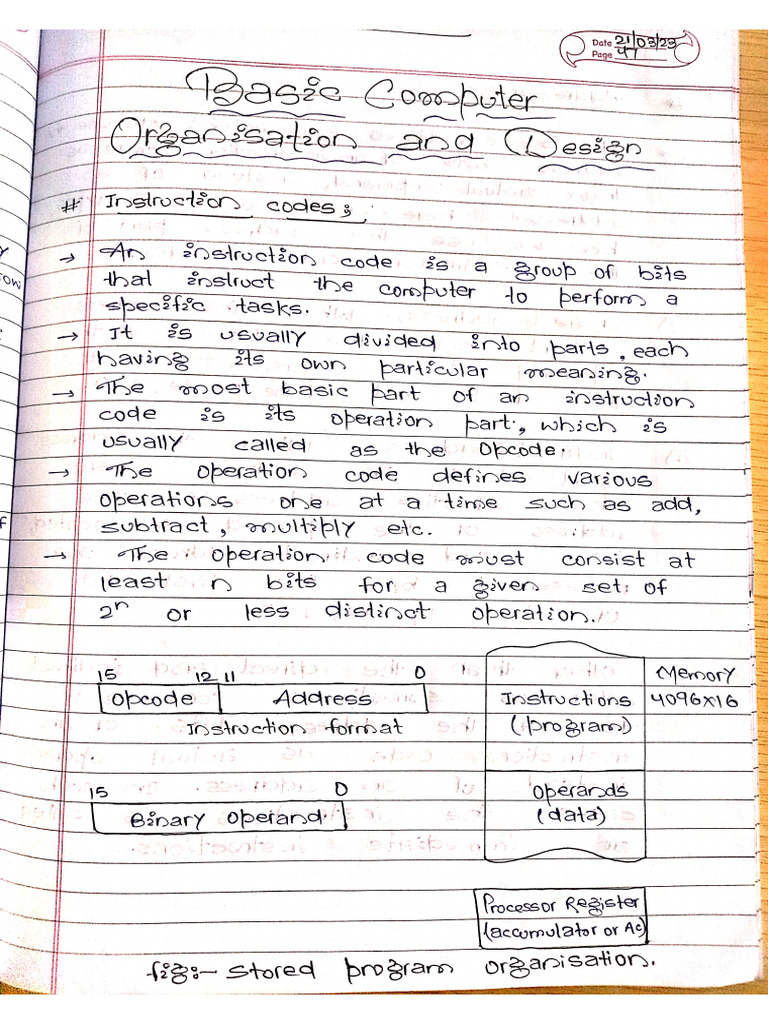 Date 21/03/23
Page 47
Basic Computer
Organisation and Design
# Instruction codes;
→ An instruction code is a group of bits
that instruct the computer to perform a
specific tasks.
→ It is usually divided into parts, each
having its own particular meaning.
→ The most basic part of an instruction
code is its operation part, which is
usually called as the Opcode.
→ The operation code defines various
operations one at a time such as add,
subtract, multiply etc.
→ The operation code must consist at
least n bits for a given set of
2ⁿ or less distinct operation.
15 12 11 0
Opcode Address
Instruction format
15 0
Binary Operand.
Memory
4096x16
Instructions
(program)
Operands
(data)
Processor Register
(accumulator or Ac)
fig:- Stored program organisation.